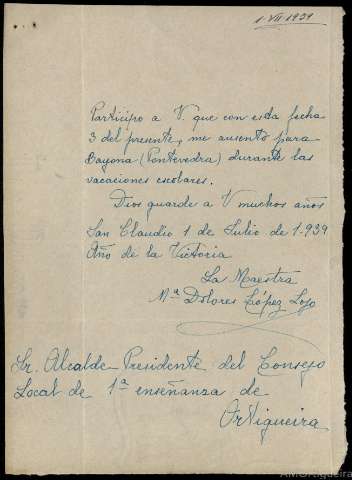 1-VII-1939
Participo a V. que con esta fecha
3 del presente, me ausento para
Bayona (Pontevedra) durante las
vacaciones escolares.
Dios guarde a V muchos años
San Claudio 1 de Julio de 1.939
Año de la Victoria
La Maestra
Mª Dolores López Lojo
Sr. Alcalde-Presidente del Consejo
Local de 1ª enseñanza de
Ortigueira